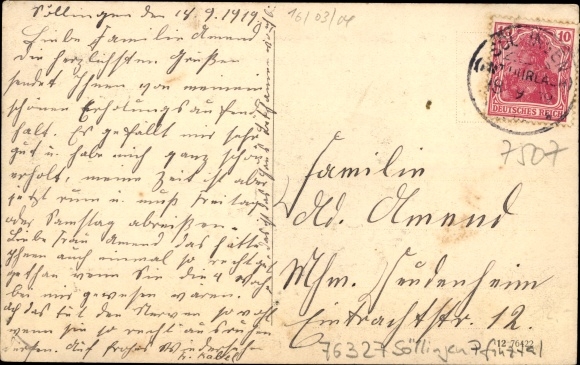 Söllingen den 14.9.1919.
Liebe Familie Amend
die herzlichsten Grüße
sendet Ihnen von meinem
schönen Erholungsaufent
halt. Es gefällt mir sehr
gut u. habe mich ganz schön
erholt, meine Zeit ist aber
jetzt rum u. muß Freitag
oder Samstag abreißen.
Liebe Frau Amend das hätte
Ihnen auch einmal so recht gut
gethan wenn Sie die 4 Woche
bei mir gewesen wären.
das tut den Nerven so wohl
wenn sie so recht ausruhen
dürfen. Auf frohes Wiedersehen
16/03/04
10
DEUTSCHES REICH
7507
Familie
Ad. Amend
Mhm. Feudenheim
Eintrachtstr. 12.
12 76422
76327 Söllingen Pfinztal